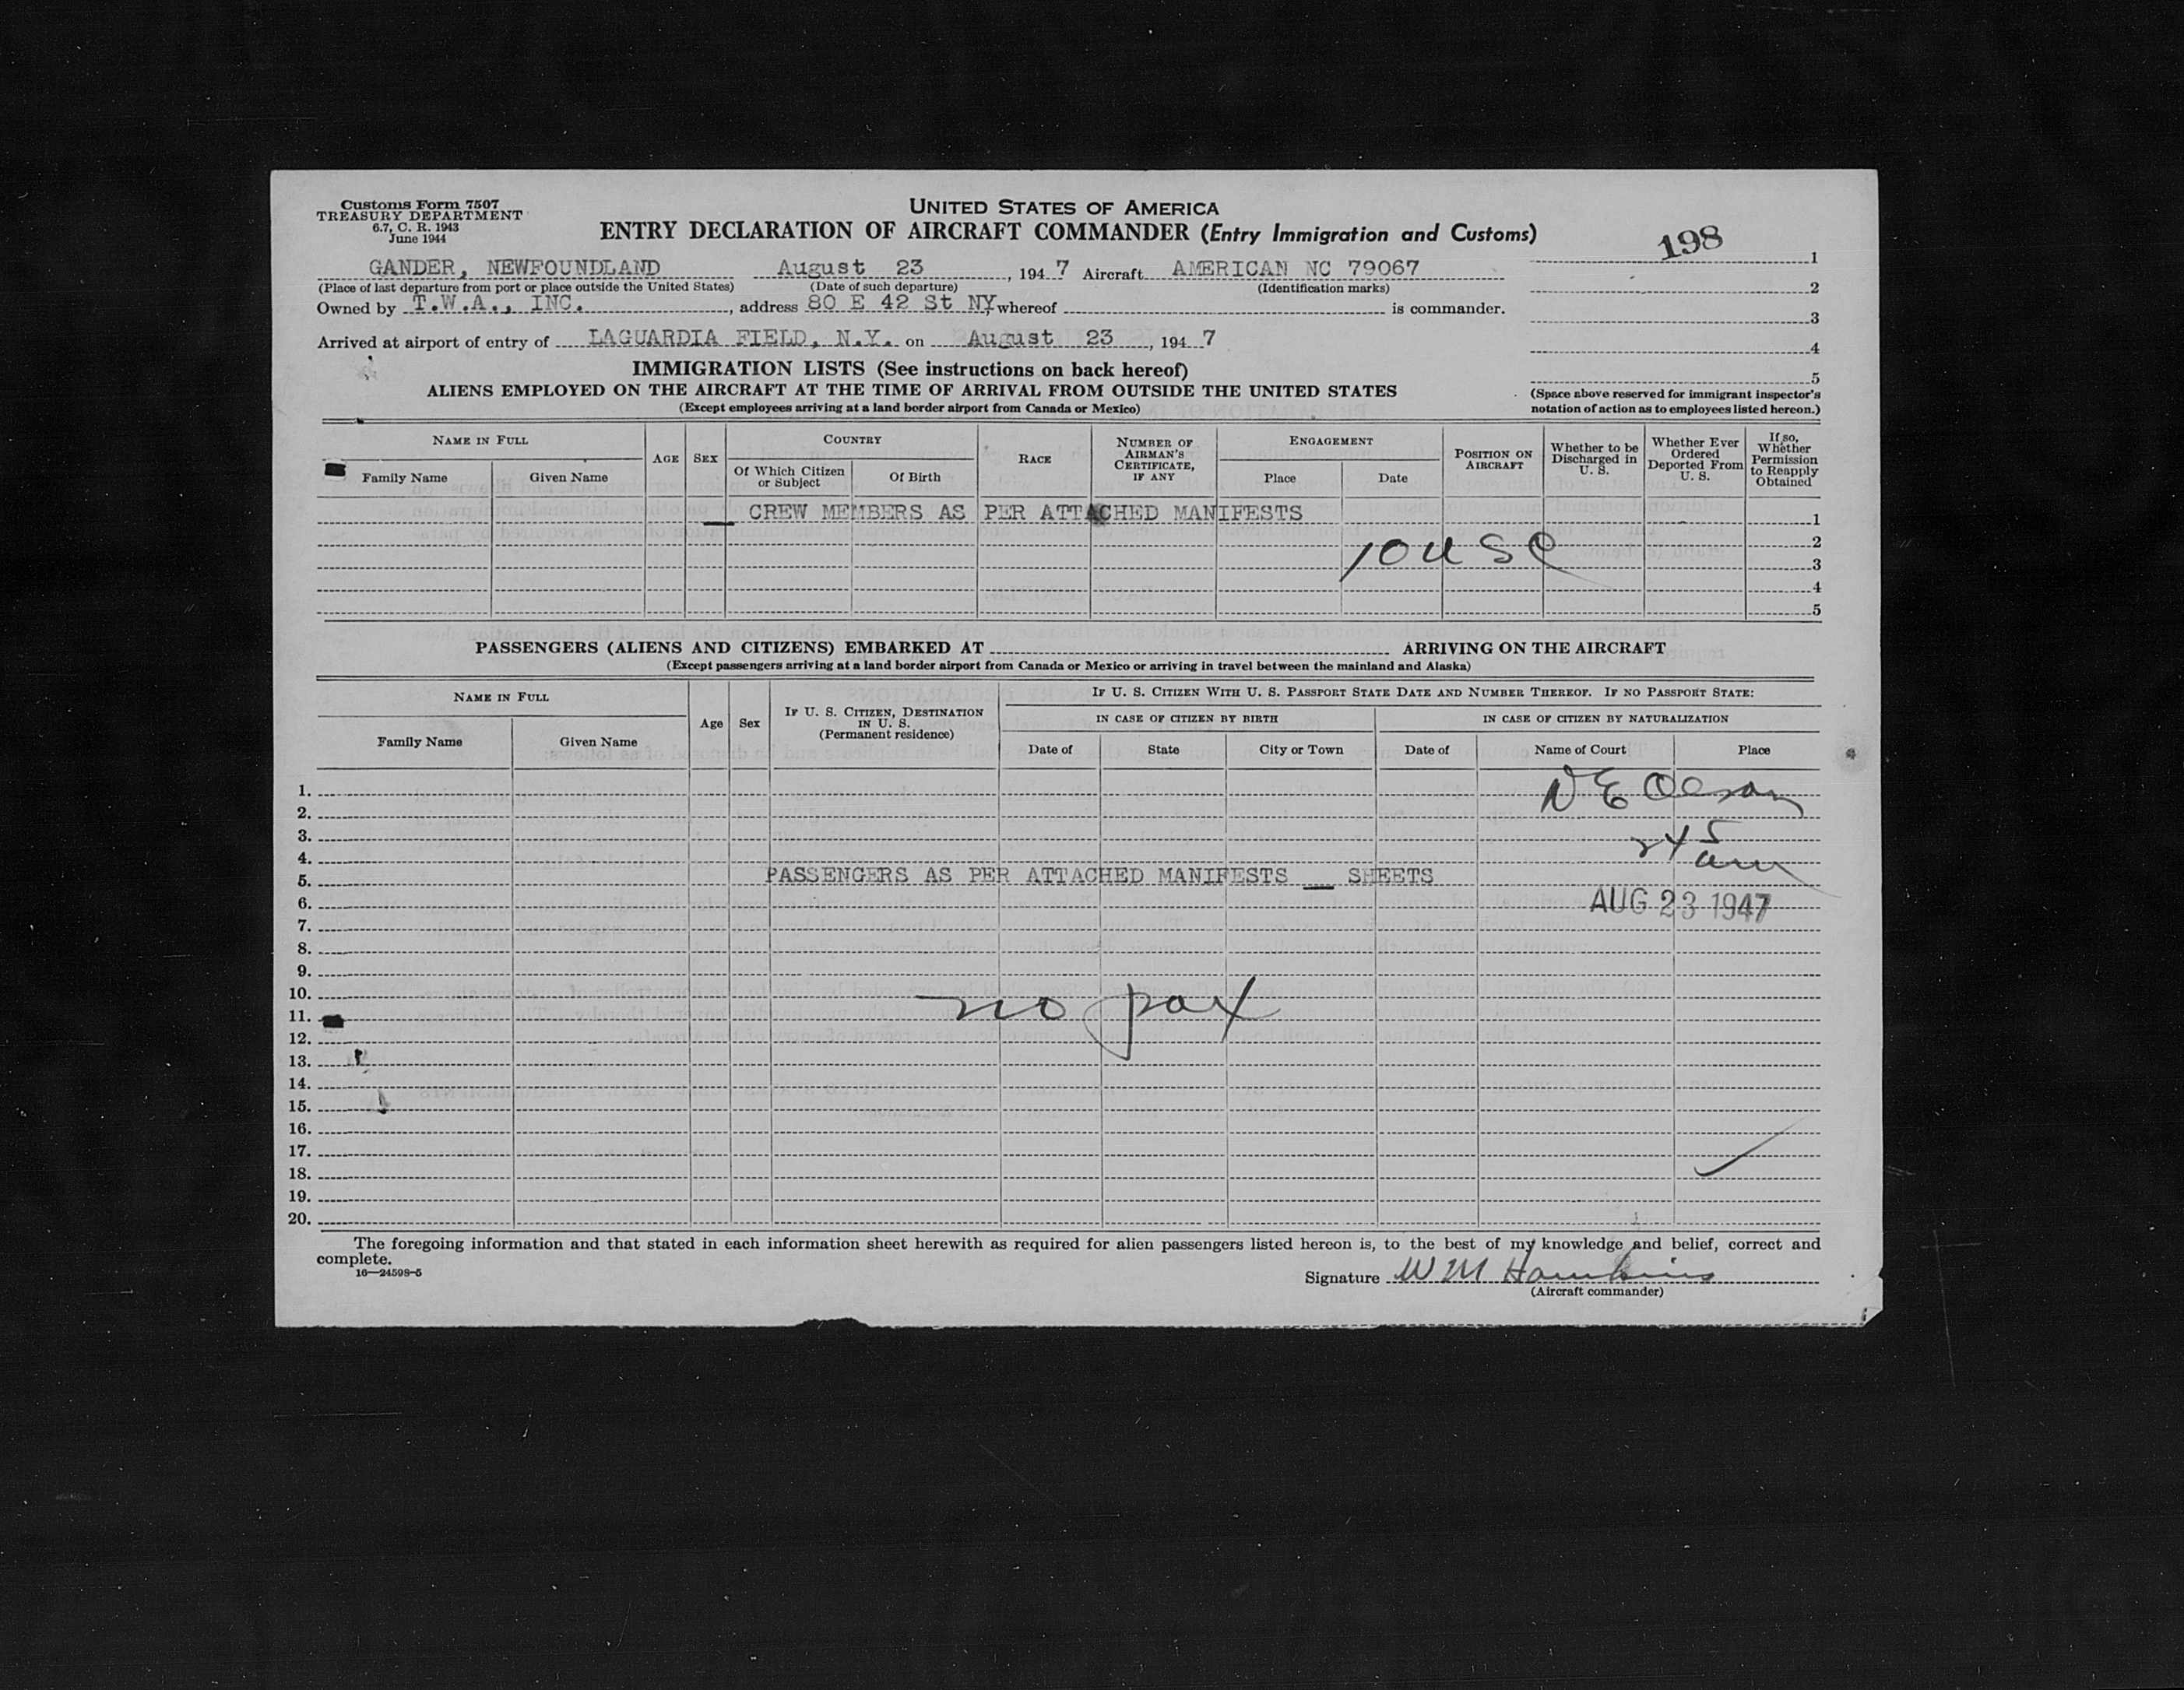 Customs Form 7507
TREASURY DEPARTMENT
6.7, C. R. 1943
June 1944
UNITED STATES OF AMERICA
ENTRY DECLARATION OF AIRCRAFT COMMANDER (Entry Immigration and Customs)
198
GANDER, NEWFOUNDLAND August 23, 1947 Aircraft AMERICAN NC 79067
(Place of last departure from port or place outside the United States) (Date of such departure) (Identification marks)
Owned by T.W.A., INC., address 80 E 42 St NY, whereof is commander.
Arrived at airport of entry of LAGUARDIA FIELD, N.Y. on August 23, 1947
1
2
3
4
5
(Space above reserved for immigrant inspector's
notation of action as to employees listed hereon.)
IMMIGRATION LISTS (See instructions on back hereof)
ALIENS EMPLOYED ON THE AIRCRAFT AT THE TIME OF ARRIVAL FROM OUTSIDE THE UNITED STATES
(Except employees arriving at a land border airport from Canada or Mexico)
NAME IN FULL
Family Name
Given Name
AGE
SEX
COUNTRY
Of Which Citizen
or Subject
Of Birth
RACE
NUMBER OF
AIRMAN'S
CERTIFICATE,
IF ANY
ENGAGEMENT
Place
Date
POSITION ON
AIRCRAFT
Whether to be
Discharged in
U. S.
Whether Ever
Ordered
Deported From
U. S.
If so,
Whether
Permission
to Reapply
Obtained
CREW MEMBERS AS PER ATTACHED MANIFESTS 1
10 USC 2
3
4
5
PASSENGERS (ALIENS AND CITIZENS) EMBARKED AT ARRIVING ON THE AIRCRAFT
(Except passengers arriving at a land border airport from Canada or Mexico or arriving in travel between the mainland and Alaska)
NAME IN FULL
Family Name
Given Name
Age
Sex
IF U. S. CITIZEN, DESTINATION
IN U. S.
(Permanent residence)
IF U. S. CITIZEN WITH U. S. PASSPORT STATE DATE AND NUMBER THEREOF. IF NO PASSPORT STATE:
IN CASE OF CITIZEN BY BIRTH
IN CASE OF CITIZEN BY NATURALIZATION
Date of
State
City or Town
Date of
Name of Court
Place
1. N E Olson
2.
3. 245
4. am
5. PASSENGERS AS PER ATTACHED MANIFESTS __ SHEETS
6. AUG 23 1947
7.
8.
9.
10. no pax
11.
12.
13.
14.
15.
16.
17.
18.
19.
20.
The foregoing information and that stated in each information sheet herewith as required for alien passengers listed hereon is, to the best of my knowledge and belief, correct and
complete.
16—24598-5
Signature W M Hawkins
(Aircraft commander)